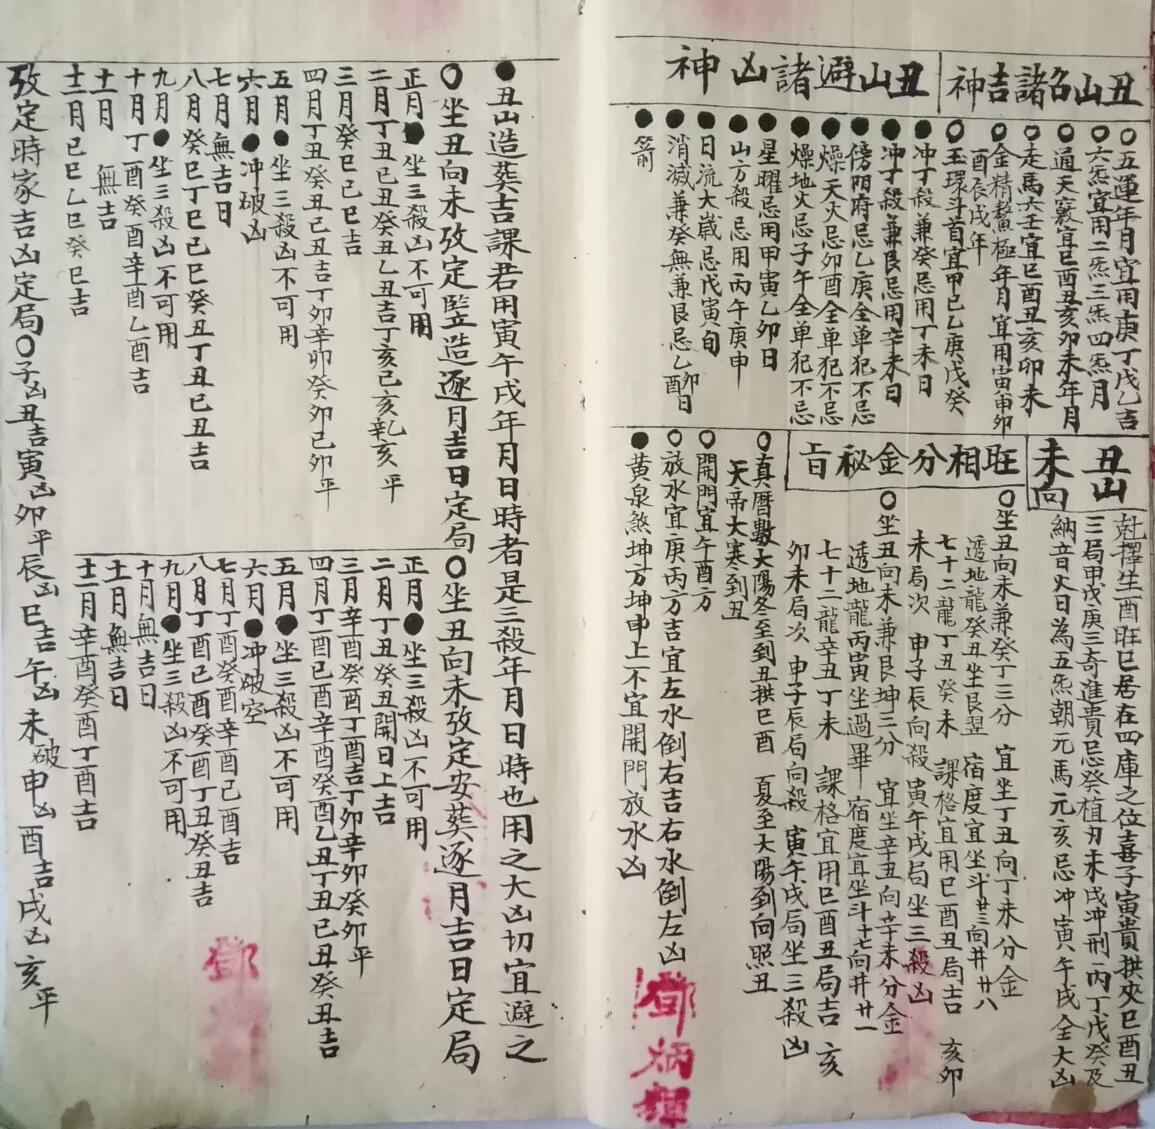 丑山召諸吉神
○五運年月宜用庚丁戊乙吉
○六炁宜用二炁三炁四炁月
○通天竅宜巳酉丑亥卯未年月
○走馬六壬宜巳酉丑亥卯未
○金精鰲極年月宜用寅申卯
酉辰戌年
○玉環斗首宜甲己乙庚戊癸
丑山避諸凶神
●冲丁殺兼癸忌用丁未日
●冲丁殺兼艮忌用辛未日
●傍陰府忌乙庚全单犯不忌
●燥天火忌卯酉全单犯不忌
●燥地火忌子午全单犯不忌
●星曜忌用甲寅乙卯日
●山方殺忌用丙午庚申
●日流大歲忌戊寅旬
●消滅兼癸無兼艮忌乙卯酉日
●箭
丑山
未向
尅擇生酉旺巳居在四庫之位喜子寅貴拱夾巳酉丑
三局甲戊庚三奇進貴忌癸植刃未戌冲刑丙丁戊癸及
納音火日為五炁朝元馬元亥忌冲寅午戌全大凶
旺相分金秘旨
○坐丑向未兼癸丁三分 宜坐丁丑向丁未分金
透地龍癸丑坐艮翌 宿度宜坐斗廿三向井廿八
七十二龍丁丑癸未 課格宜用巳酉丑局吉 亥卯
未局次 申子辰向殺寅午戌局坐三殺凶
○坐丑向未兼艮坤三分 宜坐辛丑向辛未分金
透地龍丙寅坐過畢 宿度宜坐斗十七向井廿一
七十二龍辛丑丁未 課格宜用巳酉丑局吉 亥
卯未局次 申子辰局向殺 寅午戌局坐三殺凶
○真曆數大陽冬至到丑拱巳酉 夏至大陽到向照丑
天帝大寒到丑
○開門宜午酉方
○放水宜庚丙方吉宜左水倒右吉右水倒左凶
●黄泉煞坤方坤申上不宜開門放水凶
鄧炳輝
●丑山造葬吉課君用寅午戌年月日時者是三殺年月日時也用之大凶切宜避之
○坐丑向未攷定監造逐月吉日定局
正月●坐三殺凶不可用
二月丁丑己丑癸丑乙丑吉丁亥己亥乙亥辛亥平
三月癸巳己巳吉
四月丁丑癸丑己丑吉丁卯辛卯癸卯己卯平
五月●坐三殺凶不可用
六月●冲破凶
七月無吉日
八月癸巳丁巳己巳癸丑丁丑己丑吉
九月●坐三殺凶不可用
十月丁酉癸酉辛酉乙酉吉
十一月 無吉
十二月己巳乙巳癸巳吉
○坐丑向未攷定安葬逐月吉日定局
正月●坐三殺凶不可用
二月丁丑癸丑開日上吉
三月辛酉癸酉丁酉吉丁卯辛卯癸卯平
四月丁酉己酉辛酉癸酉乙丑丁丑己丑癸丑吉
五月●坐三殺凶不可用
六月●冲破空
七月丁酉癸酉辛酉己酉吉
八月丁酉己酉癸酉丁丑癸丑吉
九月●坐三殺凶不可用
十月無吉日
十一月無吉日
十二月辛酉癸酉丁酉吉
攷定時家吉凶定局○子凶丑吉寅凶卯平辰凶巳吉午凶未破申凶酉吉戌凶亥平
鄧